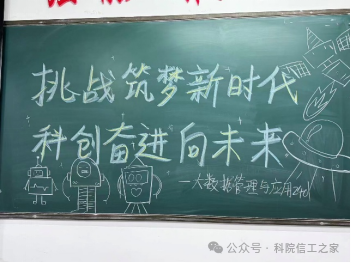 挑战筑梦新时代
科创奋进向未来
—大数据管理与应用2401
公众号·科院信工之家